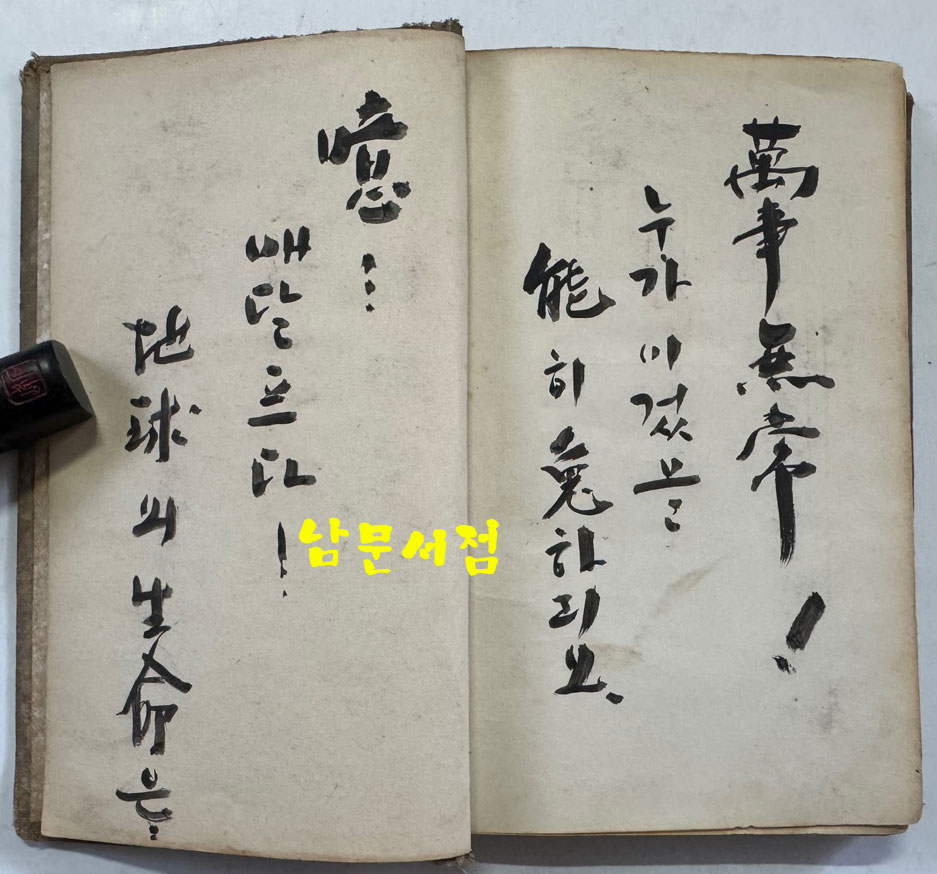 萬事無常!
누가 이것을
能히 免하리요.
噫...
애달프다!
地球의 生命은..
남문서점